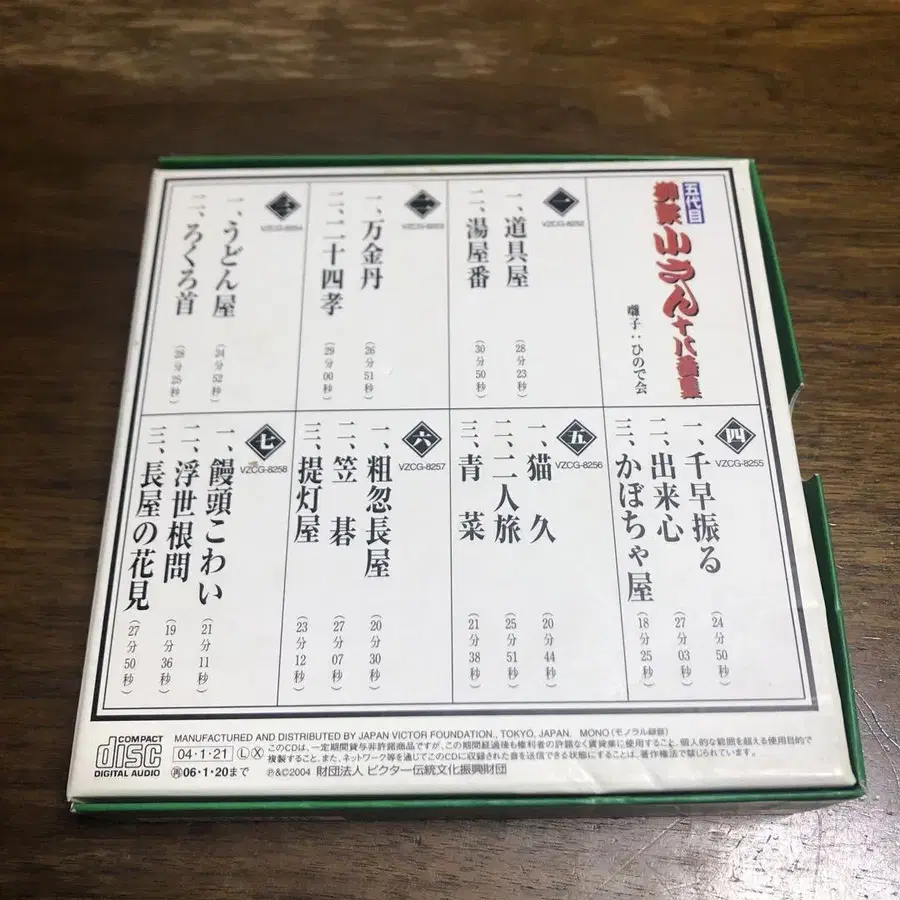 五代目
柳家小さん十八番集
囃子:ひので会
一
VZCG-8252
一、道具屋 (28分23秒)
二、湯屋番 (30分50秒)
二
VZCG-8253
一、万金丹 (26分51秒)
二、二十四孝 (29分00秒)
三
VZCG-8254
一、うどん屋 (24分52秒)
二、ろくろ首 (28分25秒)
四
VZCG-8255
一、千早振る (24分50秒)
二、出来心 (27分03秒)
三、かぼちゃ屋 (18分25秒)
五
VZCG-8256
一、猫久 (20分44秒)
二、二人旅 (25分51秒)
三、青菜 (21分38秒)
六
VZCG-8257
一、粗忽長屋 (20分30秒)
二、笠碁 (27分07秒)
三、提灯屋 (23分12秒)
七
VZCG-8258
一、饅頭こわい (21分11秒)
二、浮世根問 (19分36秒)
三、長屋の花見 (27分50秒)
COMPACT
disc
DIGITAL AUDIO
MANUFACTURED AND DISTRIBUTED BY JAPAN VICTOR FOUNDATION., TOKYO, JAPAN. MONO(モノラル録音)
04・1・21 Ⓛ Ⓧ このCDは、一定期間貸与非許諾商品ですが、この期間経過後も権利者の許諾なく賃貸業に使用すること、個人的な範囲を超える使用目的で
複製すること、また、ネットワーク等を通じてこのCDに収録された音を送信できる状態にすることは、著作権法で禁じられています。
㊢06・1・20まで ℗&©2004 財団法人 ビクター伝統文化振興財団